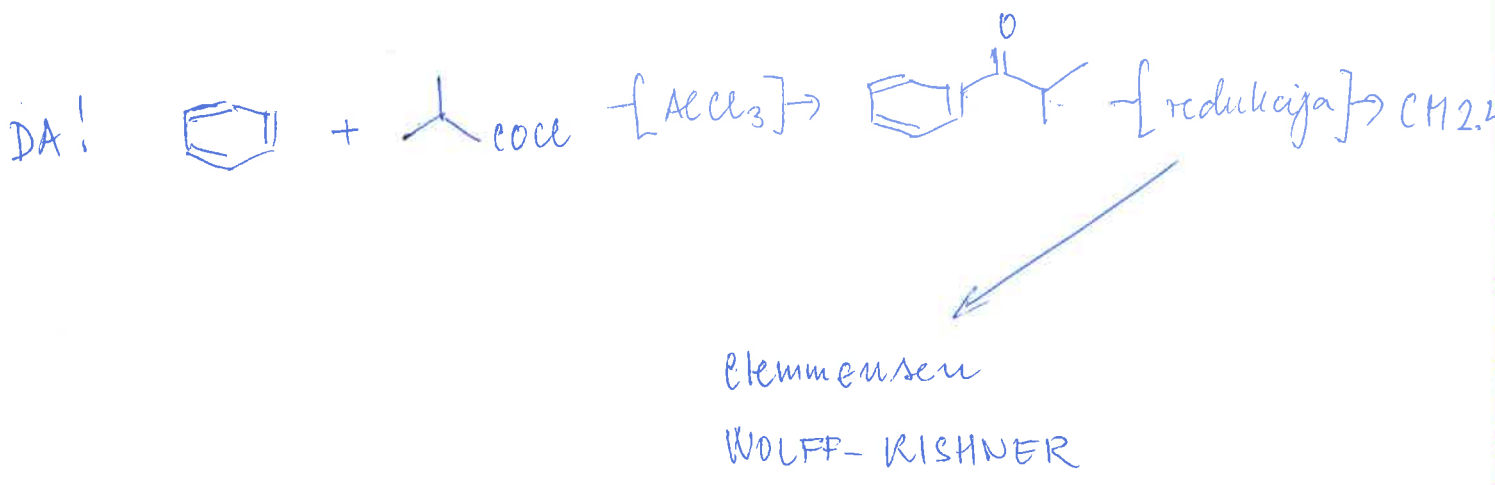 DA! + COCl [AlCl3] O [redukcija] CH2.
Clemmensen
WOLFF-KISHNER